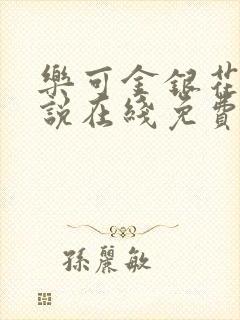 樂可金銀花
說在綫免費
孫麗敏